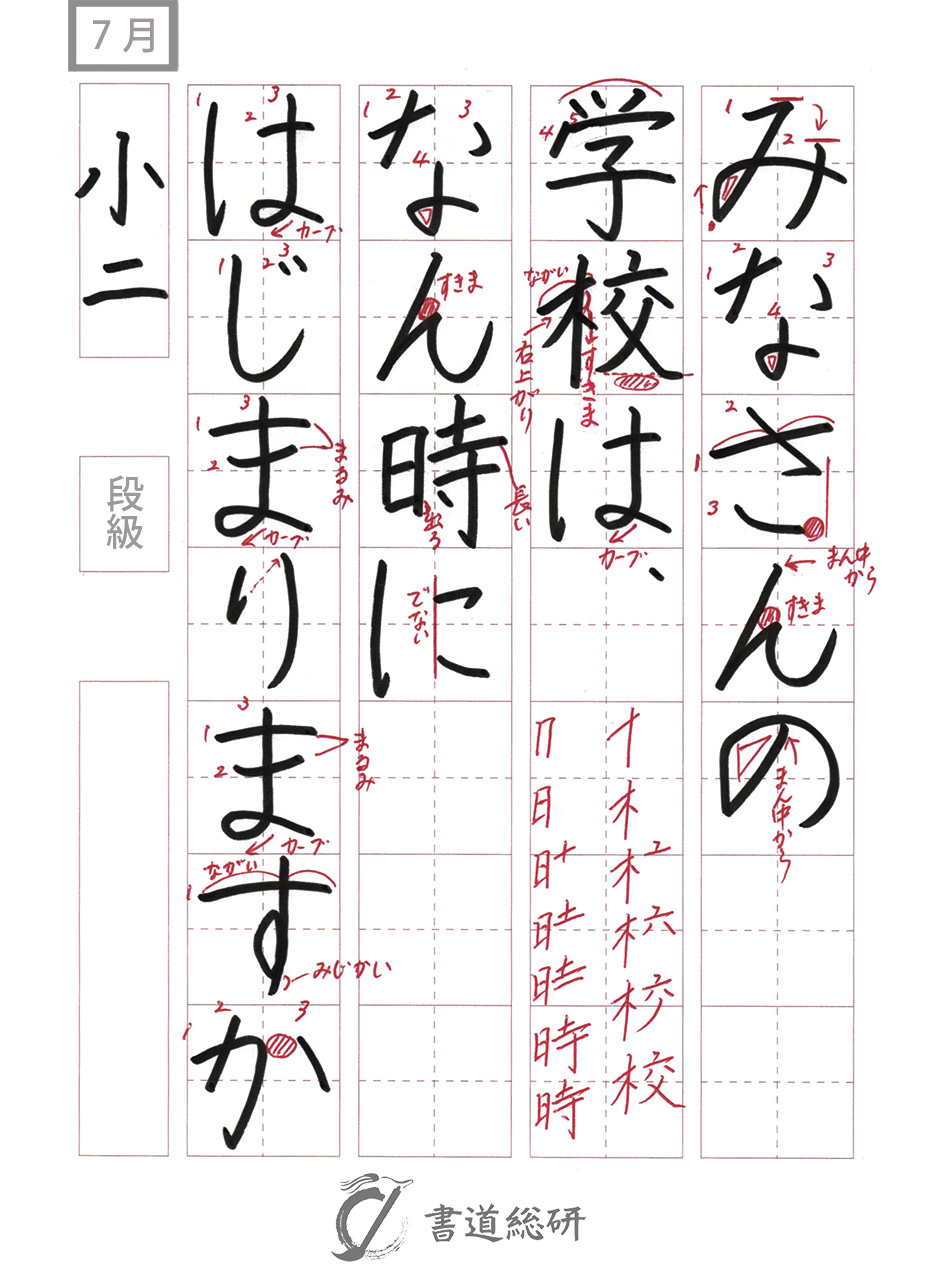 7月
みなさんの
学校は、
なん時に
はじまりますか
小二
段級
まん中から
すきま
まん中から
ながい
右上がり
すきま
カーブ
すきま
長い
出る
でない
カーブ
まるみ
カーブ
まるみ
カーブ
ながい
みじかい
書道総研